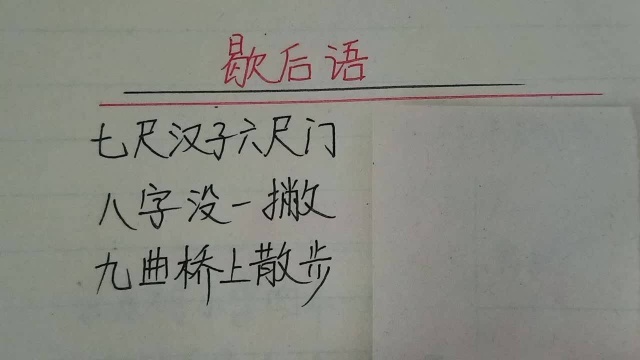 歇后语
七尺汉子六尺门
八字没一撇
九曲桥上散步